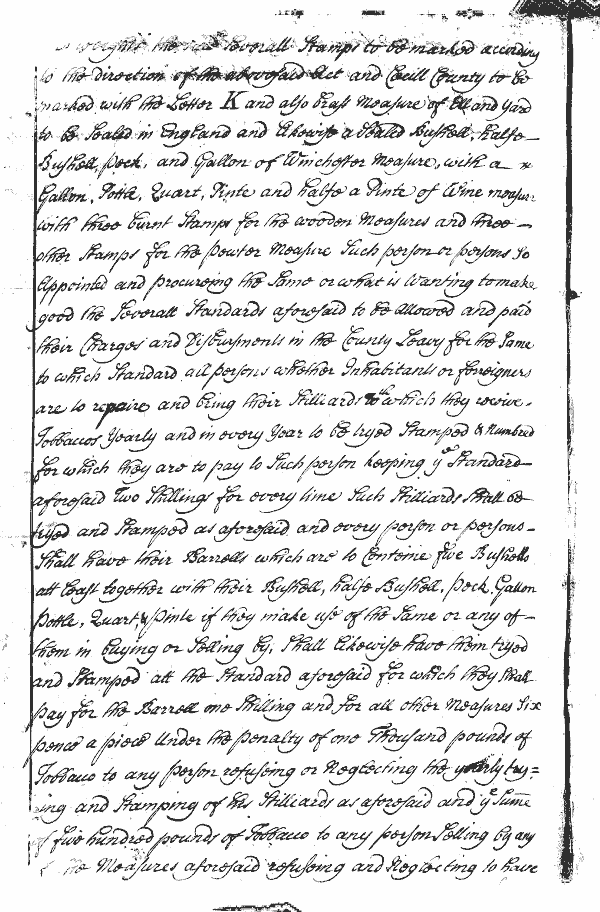 weights the said Severall Stamps to be marked according
to the direction of the abovesaid Act and Cecill County to be
marked with the Letter K and also brass Measure of Ell and Yard
to be Sealed in England and likewise a Sealed Bushell, halfe
Bushell, peck, and Gallon of Winchester Measure, with a
Gallon, Pottle, Quart, Pinte and halfe a Pinte of Wine measure
with three burnt Stamps for the wooden Measures and three
other Stamps for the pewter Measure Such person or persons So
Appointed and procureing the Same or what is Wanting to make
good the Severall Standards aforesaid to be Allowed and paid
their Charges and Disbursments in the County Leavy for the Same
to which Standard all persons whether Inhabitants or foreigners
are to repaire and bring their Stilliards wth which they receive
Tobbaccos Yearly and in every Year to be tryed Stamped & Numbred
for which they are to pay to Such person keeping ye Standard
aforesaid Two Shillings for every time Such Stilliards Shall be
tryed and Stamped as aforesaid and every person or persons
Shall have their Barrells which are to Conteine five Bushells
att least together with their Bushell, halfe Bushell, peck Gallon
Pottle, Quart, & pinte if they make use of the Same or any of
them in buying or Selling by, Shall likewise have them tryed
and Stamped att the Standard aforesaid for which they Shall
pay for the Barrell one Shilling and for all other Measures Six
pence a piece Under the penalty of one Thousand pounds of
Tobbaco to any person refuseing or Neglecting the yearly try=
ing and Stamping of his Stilliards as aforesaid and ye Sume
of five hundred pounds of Tobbaco to any person Selling by any
of the Measures aforesaid refuseing and Neglecting to have